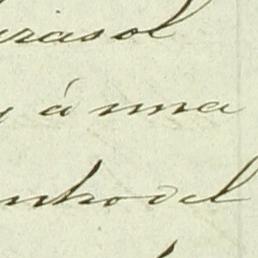 irasol
y á una
nhodel